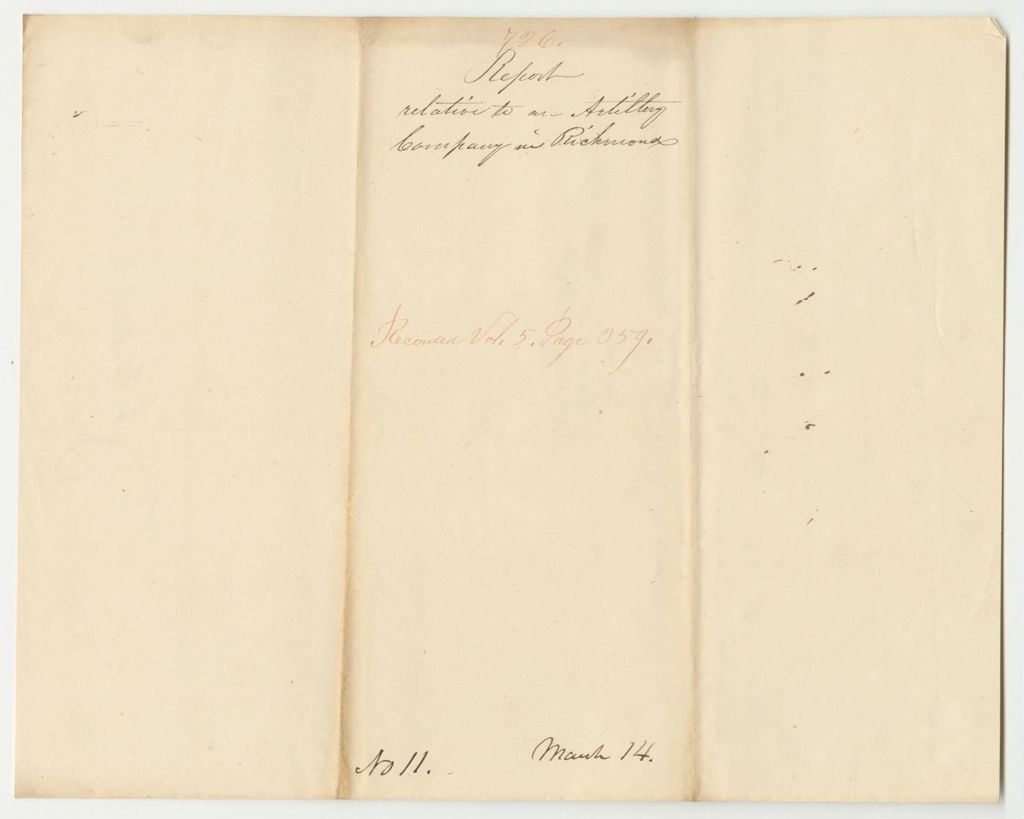 726.
Report
relative to an Artillery
Company in Richmond
Recorded Vol. 5. Page 359.
No 11.
March 14.